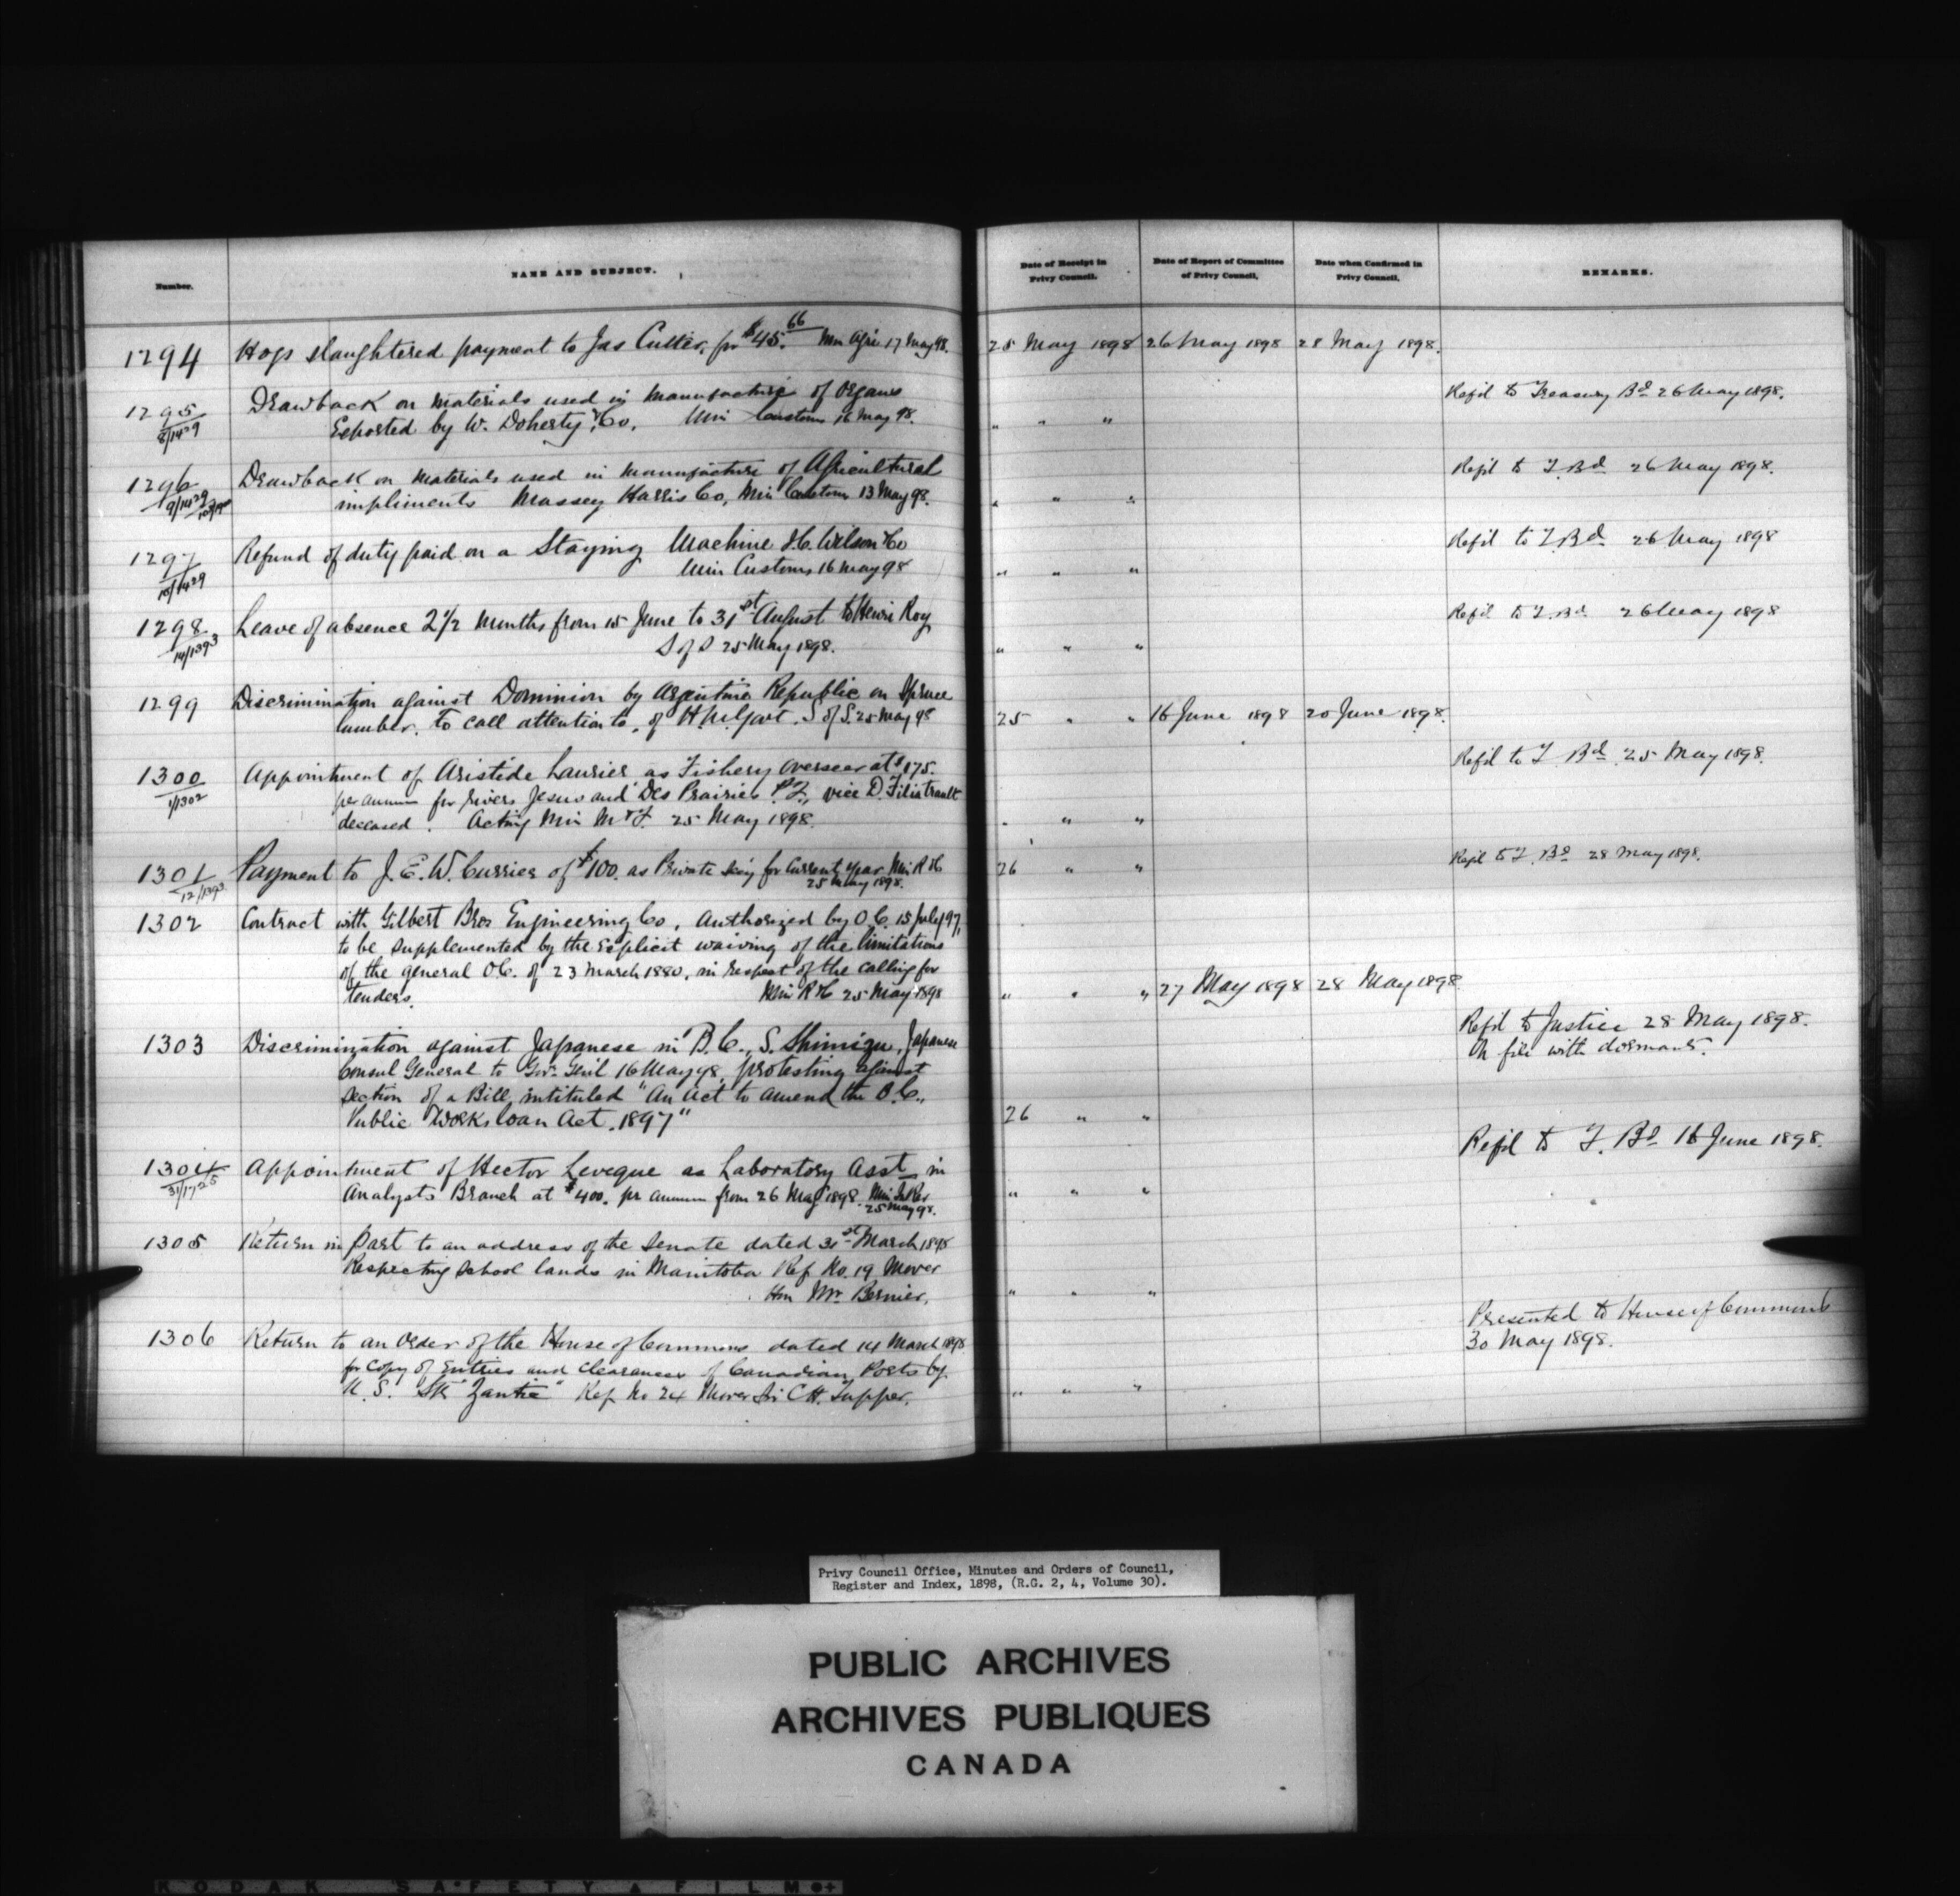 Number.
NAME AND SUBJECT.
Date of Receipt in Privy Council.
Date of Report of Committee of Privy Council.
Date when Confirmed in Privy Council.
REMARKS.
1294 Hogs slaughtered payment to Jas Cutler, for $45.66 Min Agri 17 May 98. 25 May 1898 26 May 1898 28 May 1898.
1295 Drawback on materials used in manufacture of Organs Refd to Treasury Bd 26 May 1898.
8/1429 Exported by W. Doherty & Co. Min Customs 16 May 98. " " "
1296 Drawback on materials used in manufacture of Agricultural Refd to T. Bd 26 May 1898.
9/1429 impliments Massey Harris Co, Min Customs 13 May 98. " " "
1297 Refund of duty paid on a Staying Machine J.C. Wilson & Co Refd to T. Bd 26 May 1898
10/1429 Min Customs 16 May 98 " " "
1298 Leave of absence 2 1/2 months from 15 June to 31st August to Henri Roy Refd to T. Bd 26 May 1898
14/1393 S of S 25 May 1898. " " "
1299 Discrimination against Dominion by Argentine Republic on Spruce
lumber, to call attention to, of S of S. 25 May 98 25 " " 16 June 1898 20 June 1898.
1300 Appointment of Aristide Laurier as Fishery Overseer at $175. Refd to T. Bd 25 May 1898.
1/1302 per annum for rivers Jesus and Des Prairies P.Q., vice D. Filiatrault
deceased. Acting Min M & F. 25 May 1898. " " "
1301 Payment to J. E. W. Currier of $100. as Private Secy for Current year Min R & C 26 " " Refd to T. Bd 28 May 1898.
12/1393 25 May 1898.
1302 Contract with Gilbert Bros Engineering Co, Authorized by O.C. 15 July 97,
to be supplemented by the explicit waiving of the limitations
of the general O.C. of 23 March 1880, in respect of the calling for
tenders. Min R & C 25 May 1898 " " " 27 May 1898 28 May 1898
1303 Discrimination against Japanese in B.C., S. Shimizu, Japanese Refd to Justice 28 May 1898.
Consul General to Gov. Genl 16 May 98, protesting against On file with dormants.
section of a Bill intituled "An Act to amend the B.C.,
Public Works Loan Act, 1897" 26 " "
1304 Appointment of Hector Leveque as Laboratory Asst in Refd to T. Bd 16 June 1898.
31/1725 Analysts Branch at $400. per annum from 26 May 1898. Min In Rev " " "
25 May 98.
1305 Return in part to an address of the Senate dated 31st March 1898
Respecting School lands in Manitoba Ref No. 19 Mover
Hon Mr. Bernier. " " "
1306 Return to an Order of the House of Commons dated 14 March 1898 Presented to House of Commons
for copy of Entries and clearances of Canadian Ports by 30 May 1898.
U. S. Str "Yantic" Ref No 24 Mover Sir C H. Tupper. " " "
Privy Council Office, Minutes and Orders of Council,
Register and Index, 1898, (R.G. 2, 4, Volume 30).
PUBLIC ARCHIVES
ARCHIVES PUBLIQUES
CANADA
KODAK SAFETY FILM